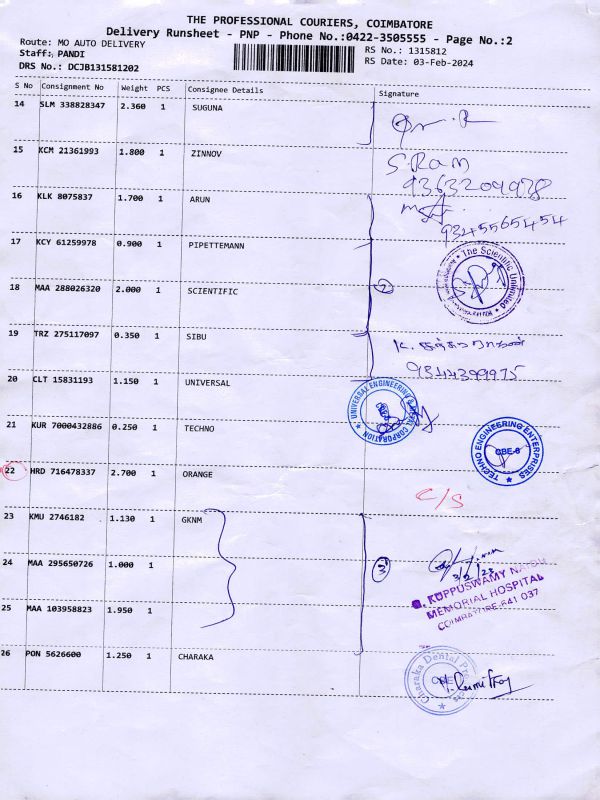 THE PROFESSIONAL COURIERS, COIMBATORE
Delivery Runsheet - PNP - Phone No.:0422-3505555 - Page No.:2
Route: MO AUTO DELIVERY RS No.: 1315812
Staff: PANDI RS Date: 03-Feb-2024
DRS No.: DCJB131581202
S No Consignment No Weight PCS Consignee Details Signature
14 SLM 338828347 2.360 1 SUGUNA
15 KCM 21361993 1.800 1 ZINNOV S.RAM
9363209978
16 KLK 8075837 1.700 1 ARUN
9345565454
17 KCY 61259978 0.900 1 PIPETTEMANN
The Scientific Unlimited
18 MAA 288026320 2.000 1 SCIENTIFIC 2
19 TRZ 275117097 0.350 1 SIBU
9344399975
20 CLT 15831193 1.150 1 UNIVERSAL
UNIVERSAL ENGINEERING CORPORATION
21 KUR 7000432886 0.250 1 TECHNO
TECHNO ENGINEERING ENTERPRISES
CBE-6
22 HRD 716478337 2.700 1 ORANGE
C/S
23 KMU 2746182 1.130 1 GKNM
24 MAA 295650726 1.000 1 3
G. KUPPUSWAMY NAIDU
MEMORIAL HOSPITAL
COIMBATORE-641 037
25 MAA 103958823 1.950 1
26 PON 5626600 1.250 1 CHARAKA
Charaka Dental Products
CBE